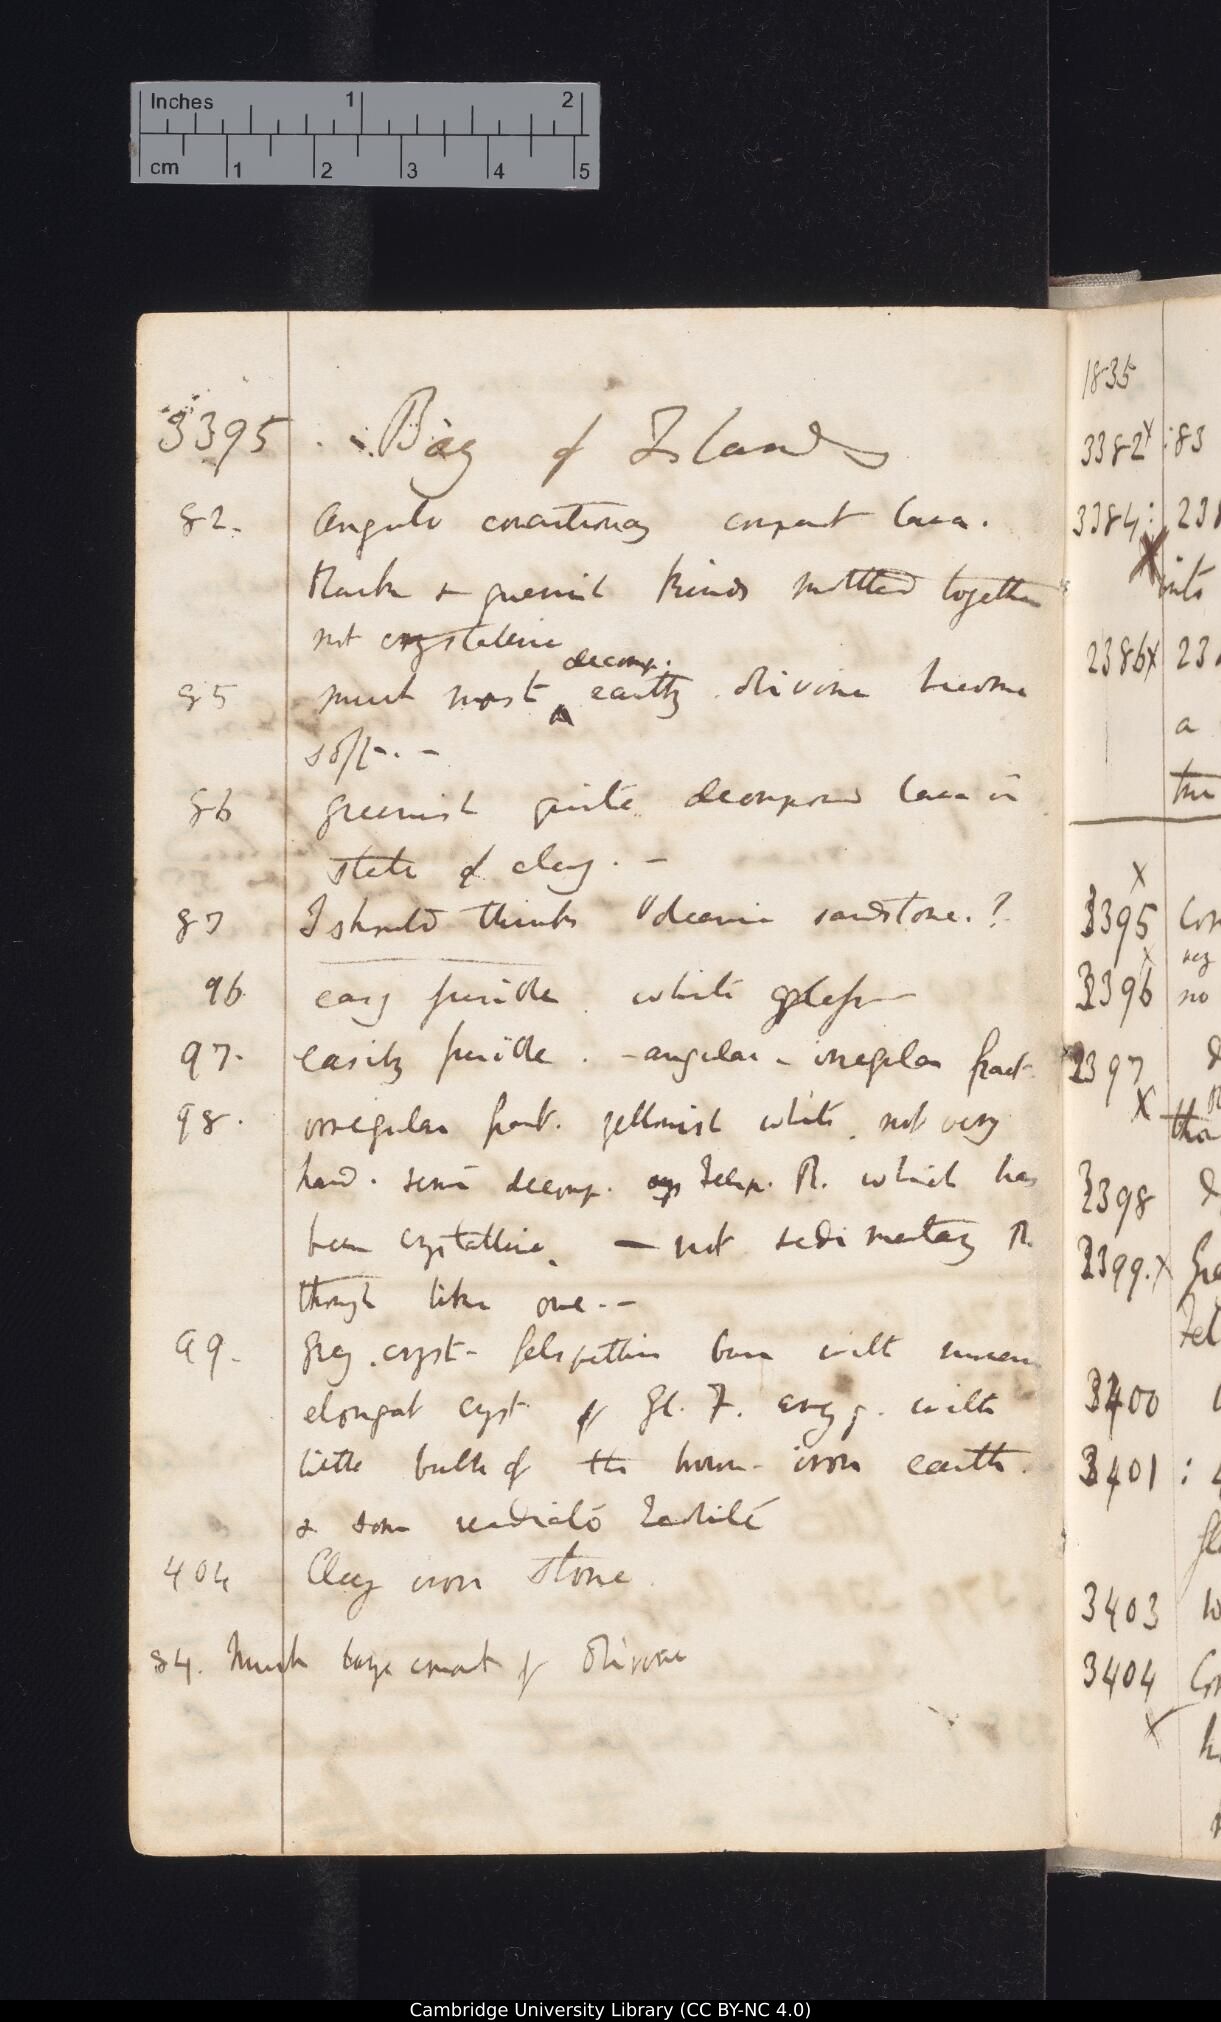 Inches 1 2
cm 1 2 3 4 5
3395 . Bay of Islands
82. Angulo concretionary compact lava.
Black & greenish kinds mottled together
not crystalline
decomp.
85 much most earthy olivine become
soft. —
86 greenish quite decomposed lava in
state of clay. —
87 I should think Volcanic sandstone.?
96 easy fusible white glass —
97. easily fusible. — angular — irregular fract
98. irregular fract. yellowish white, not very
hard. semi decomp. Felsp. R. which has
been crystalline, — not sedimentary R.
though like one. —
99. Grey. cryst- felspathic base with numerous
elongat cryst of Gl. F. amyg. with
little balls of the brown iron earth.
& some radiated Zeolite
404 Clay iron stone
84. Much large cryst of Olivine
1835
3382x :83
3384: 238
into
2386x 23
a
the
x
3395 Con
x
3396 no
2397
x tho
3398
3399.x Gre
Fel
3400
3401 :
gl
3403
3404 Con
x
Cambridge University Library (CC BY-NC 4.0)